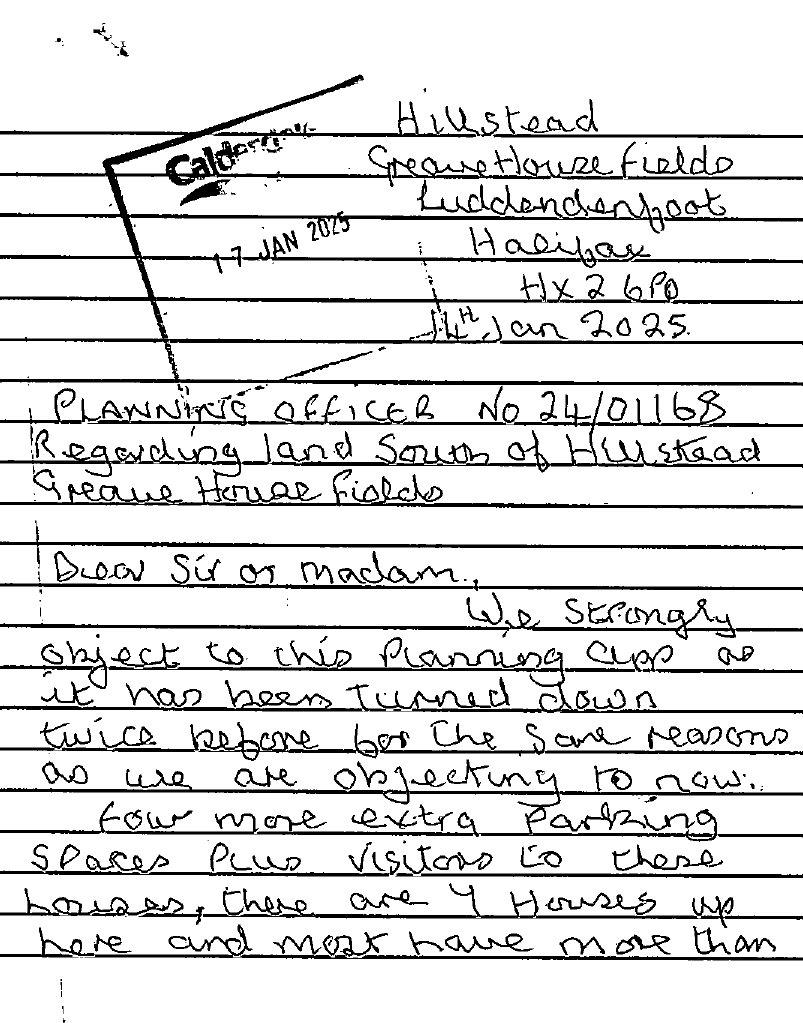 Hillstead
Greave House Fields
Luddendenfoot
Calderdale
17 JAN 2025
Halifax
HX2 6PD
14TH Jan 2025.
PLANNING OFFICER No 24/01168
Regarding land South of Hillstead
Greave House Fields
Dear Sir or Madam.,
We Strongly
object to this Planning App as
it has been Turned down
twice before for the same reasons
as we are objecting to now.
four more extra Parking
Spaces Plus Visitors to these
houses, there are Houses up
here and most have more than